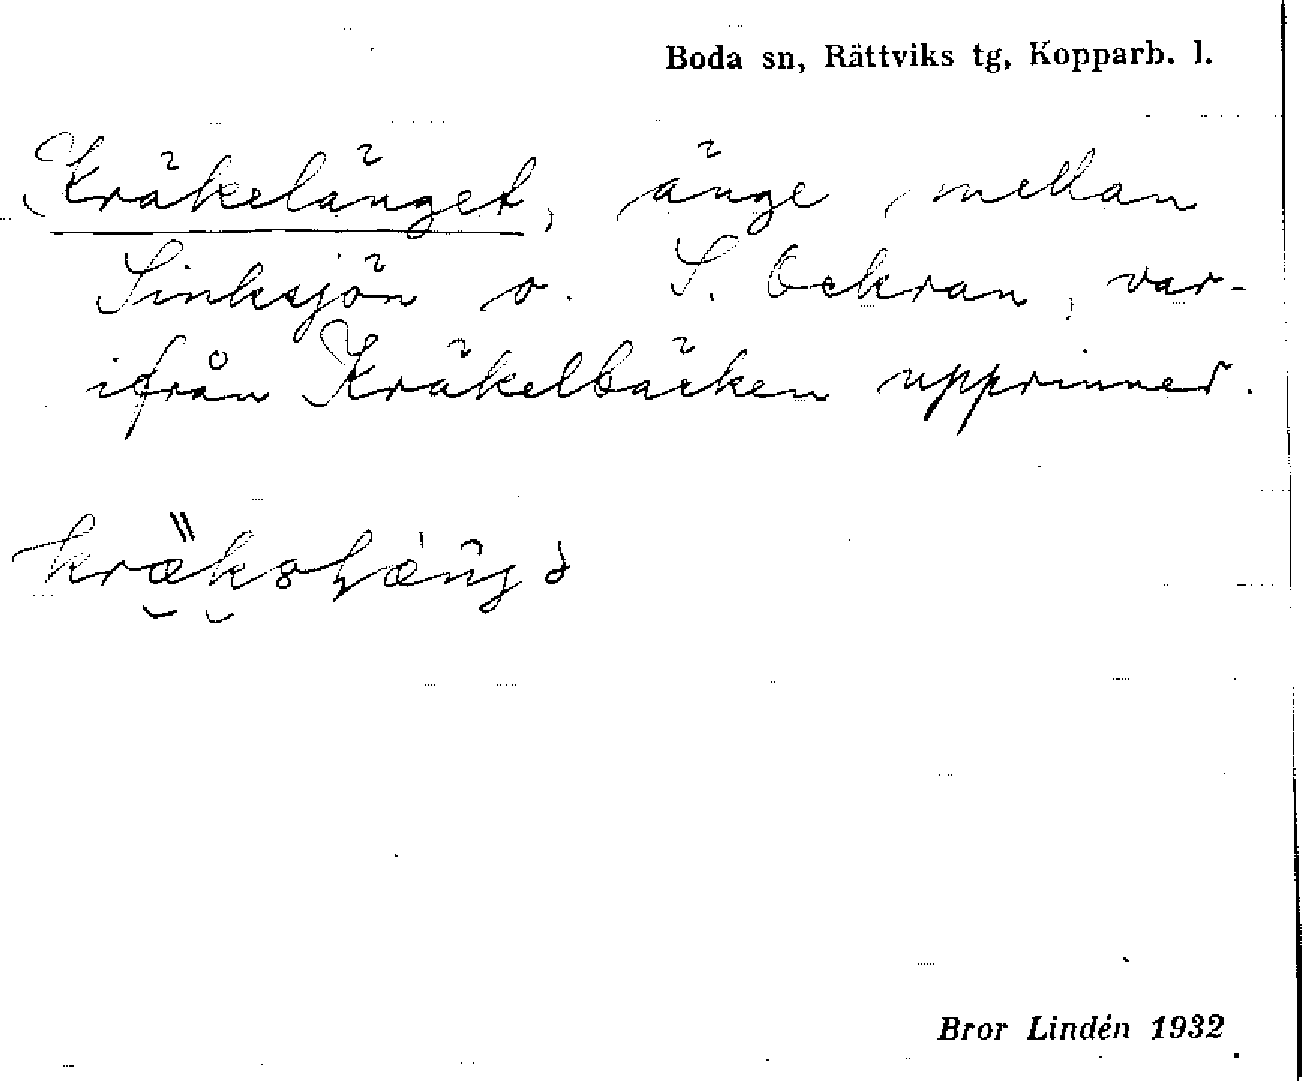 Boda sn, Rättviks tg, Kopparb. l.
Kräkelänget, änge mellan
Sinksjön o. S. Ockran, var-
ifrån Kräkelbäcken upprinner.
Bror Lindén 1932